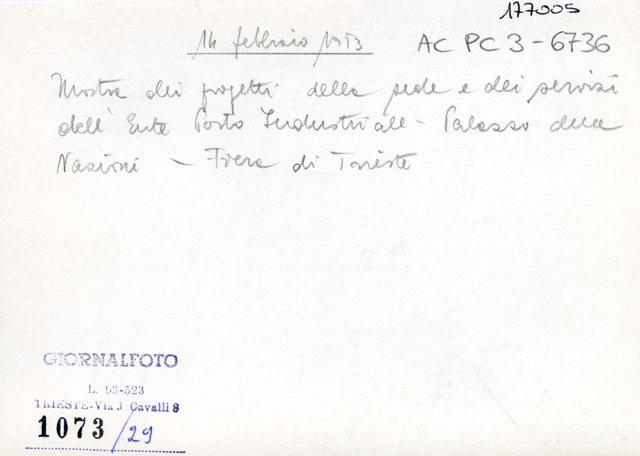 177005
14 febbraio 1953
AC PC 3-6736
Mostra dei progetti della sede e dei servizi
dell'Ente Porto Industriale - Palazzo delle
Nazioni - Fiera di Trieste
29
GIORNALFOTO
L. 93-523
TRIESTE-Via J Cavalli 8
1073/29